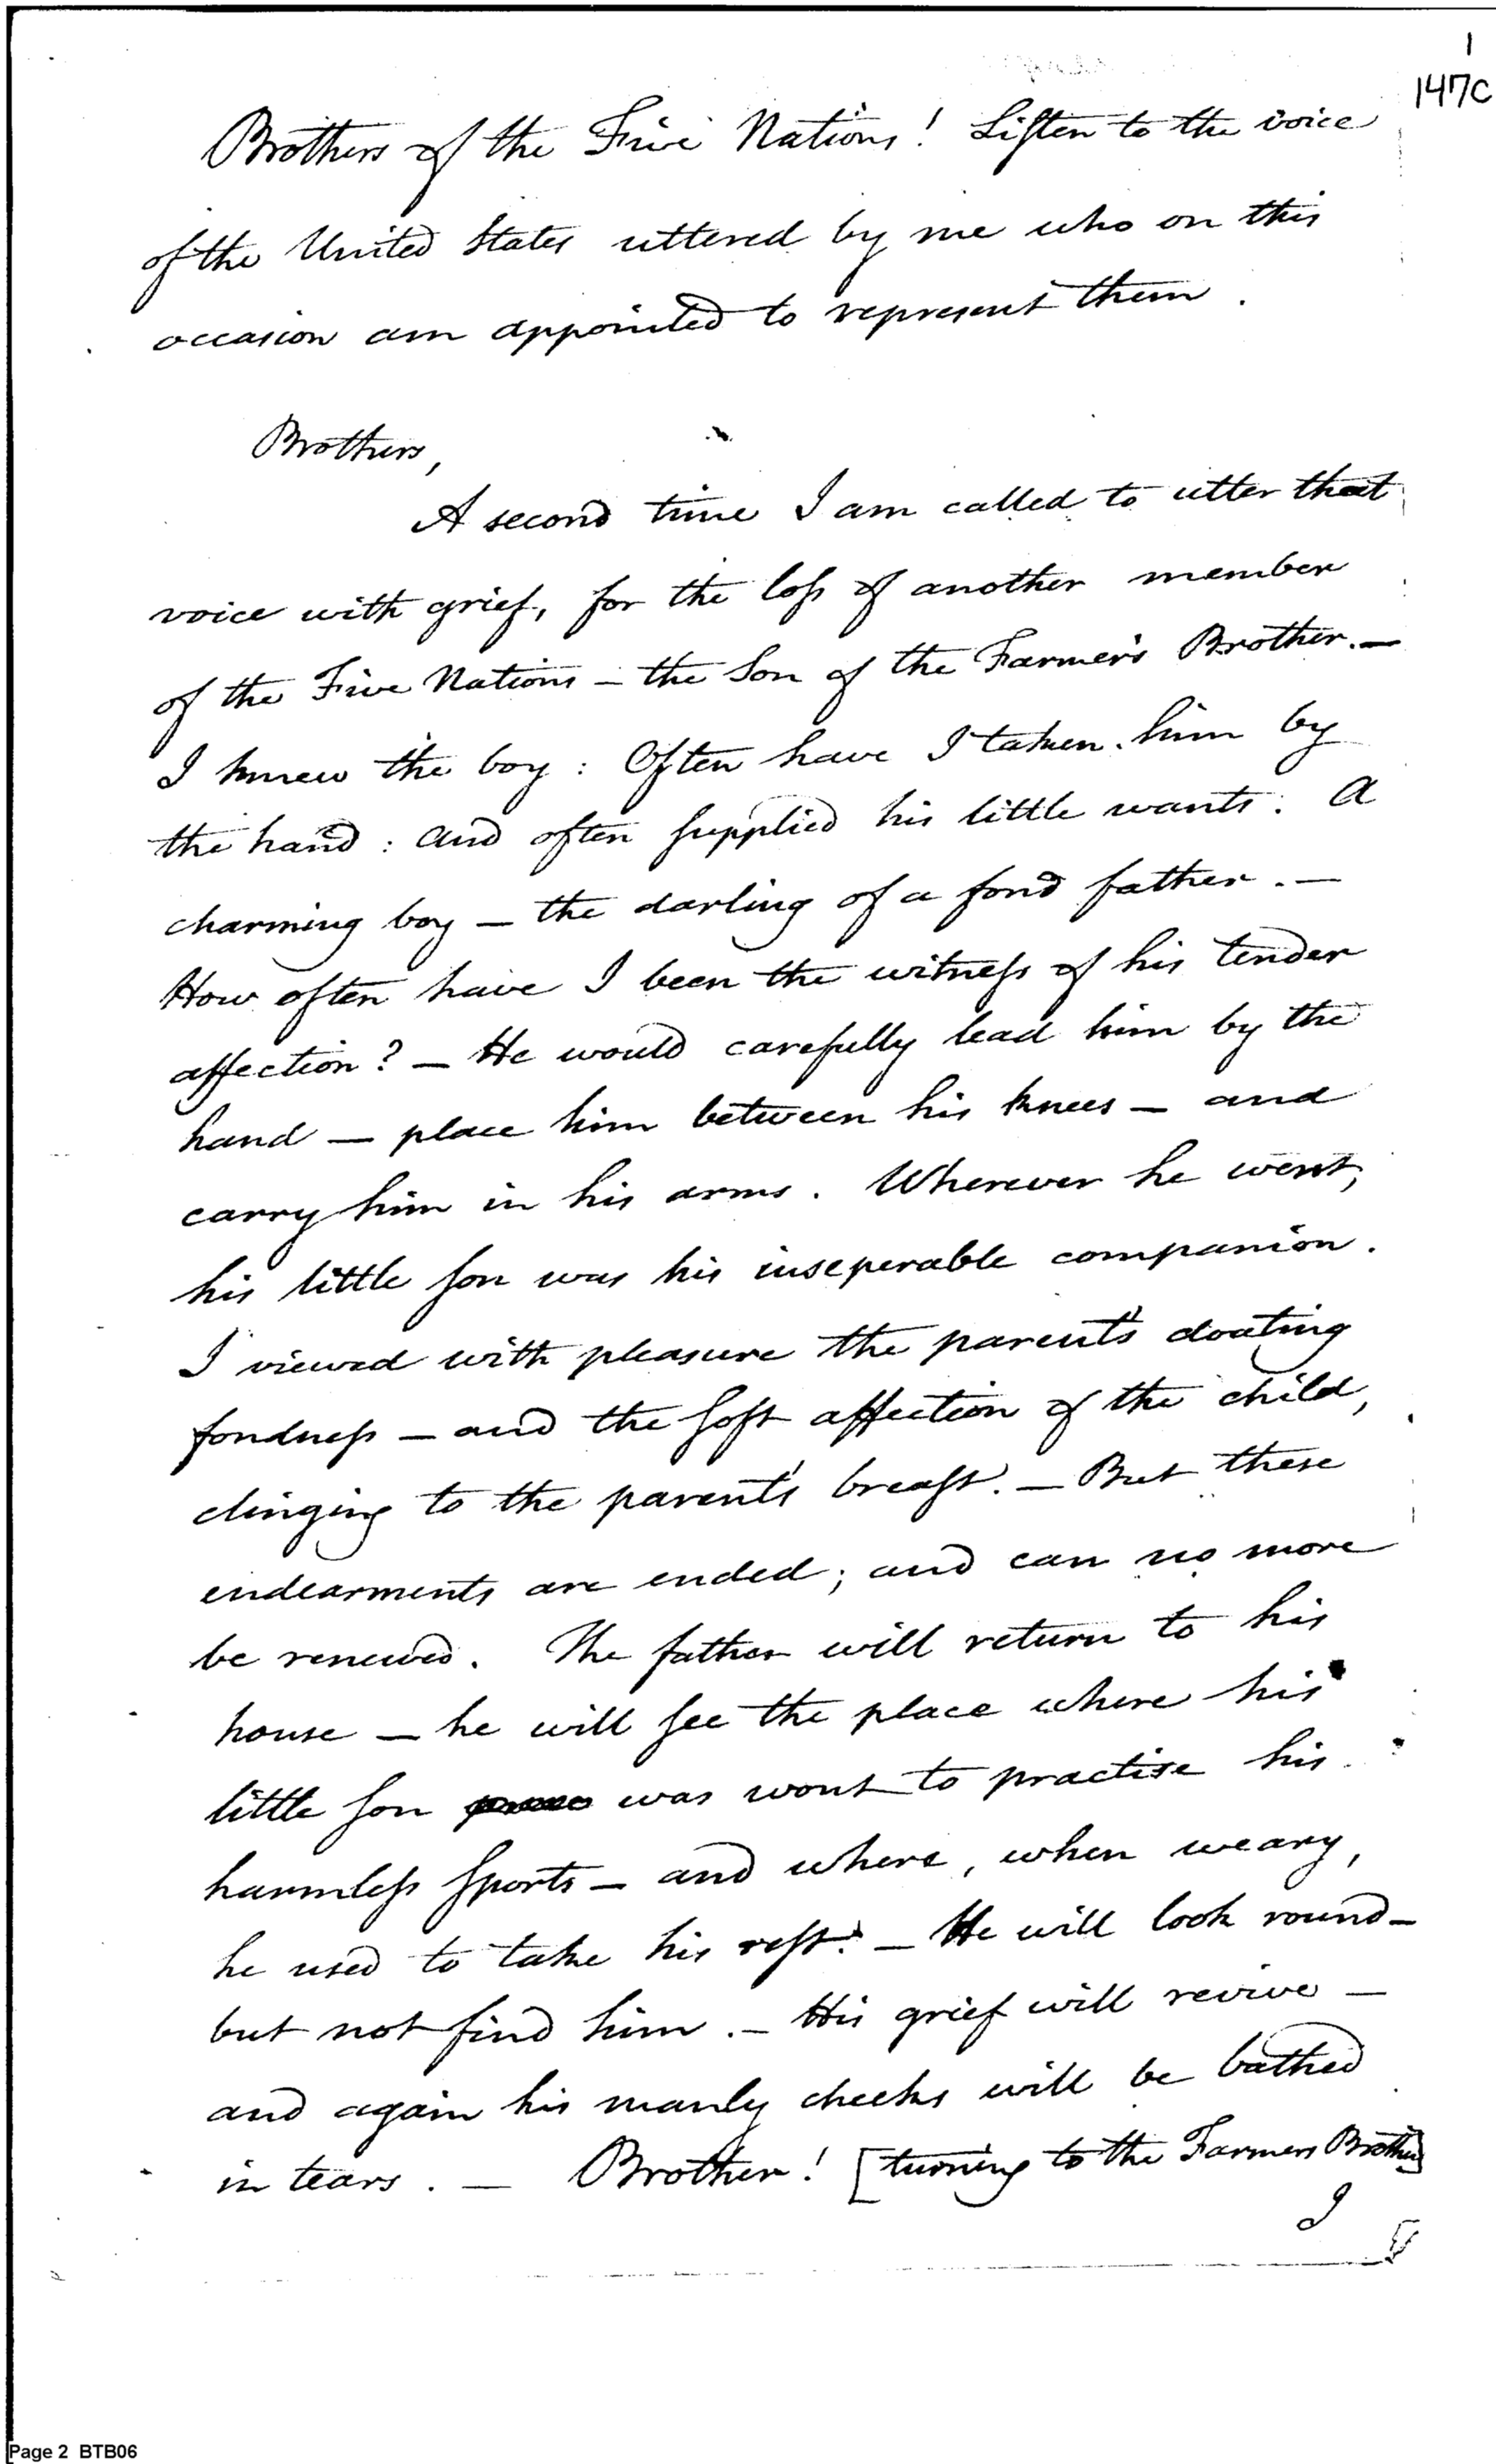 1
147C
Brothers of the Five Nations! Listen to the voice
of the United States uttered by me who on this
occasion am appointed to represent them.
Brothers,
A second time I am called to utter that
voice with grief, for the loss of another member
of the Five Nations — the Son of the Farmer's Brother. —
I knew the boy: Often have I taken him by
the hand: and often supplied his little wants: A
charming boy — the darling of a fond father. —
How often have I been the witness of his tender
affection? — He would carefully lead him by the
hand — place him between his knees — and
carry him in his arms. Wherever he went,
his little son was his inseperable companion.
I viewed with pleasure the parent's doating
fondness — and the soft affection of the child,
clinging to the parent's breast. — But these
endearments are ended; and can no more
be renewed. The father will return to his
house — he will see the place where his
little son was wont to practise his
harmless sports — and where, when weary,
he used to take his rest. — He will look round —
but not find him. — His grief will revive —
and again his manly cheeks will be bathed
in tears. — Brother! [turning to the Farmers Brother]
I
Page 2 BTB06